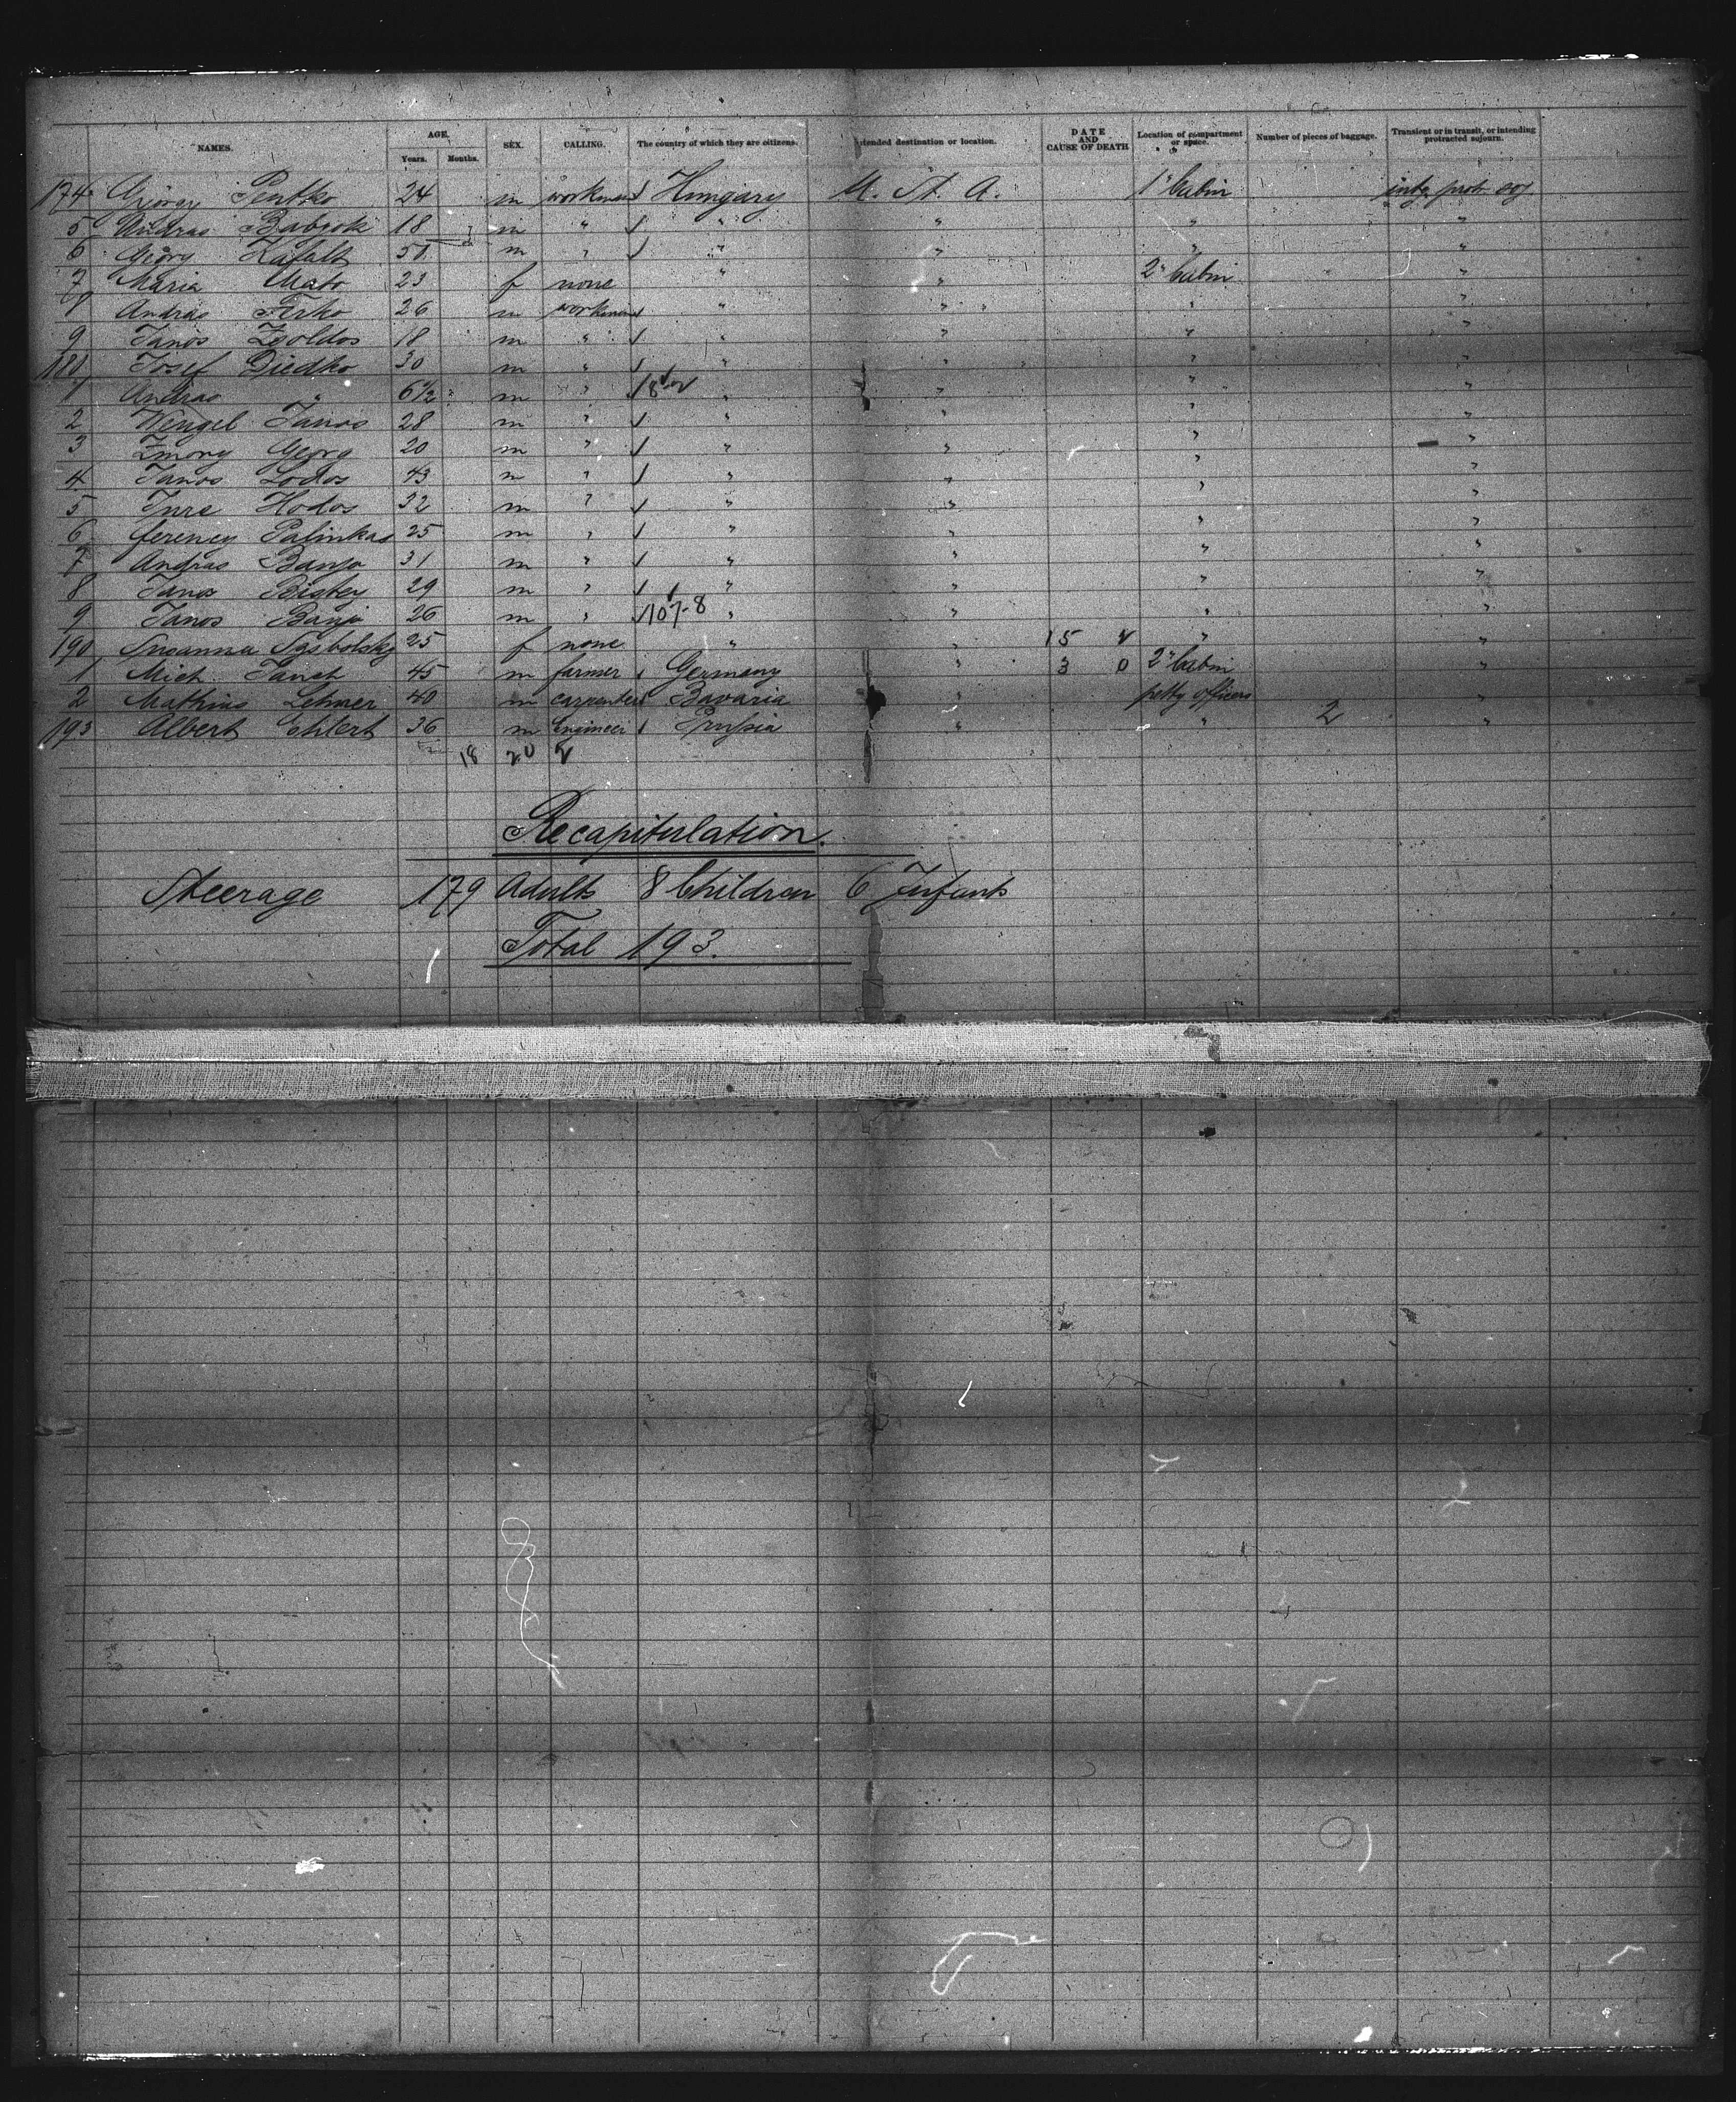 NAMES. AGE. Years. Months. SEX. CALLING. The country of which they are citizens. Intended destination or location. DATE AND CAUSE OF DEATH Location of compartment or space. Number of pieces of baggage. Transient or in transit, or intending protracted sojourn.
174 György Pentko 24 m workman Hungary U. St. A. 1" Cabin intg prot soj
5 Andras Babicski 18 m " " " " "
6 György 50 m " " " " "
7 Maria Mato 23 f none " " 2" Cabin "
8 Andras Firko 26 m workman " " " "
9 Janos Zsoldos 18 m " " " " "
180 Josef Diedko 30 m " " " " "
1 Andras " 6 1/2 m " 18 " " " "
2 Wengel Janos 28 m " " " " "
3 Zmory Georg 20 m " " " " "
4 Janos Lodos 43 m " " " " "
5 Jure Hodos 32 m " " " " "
6 ferency Palinkas 25 m " " " " "
7 Andras Banja 31 m " " " " "
8 Janos 29 m " " " " "
9 Janos Banja 26 m " 107-8 " " " "
190 Susanna 25 f none " " 15 " "
1 Mich. Janch 45 m farmer Germany " 3 0 2" Cabin "
2 Mathias Lehner 40 m carpenter Bavaria " petty officers "
193 Albert Ehlert 36 m Engineer Prussia " " 2 "
18 20 2
Recapitulation.
Steerage 179 Adults 8 Children 6 Infants
Total 193.